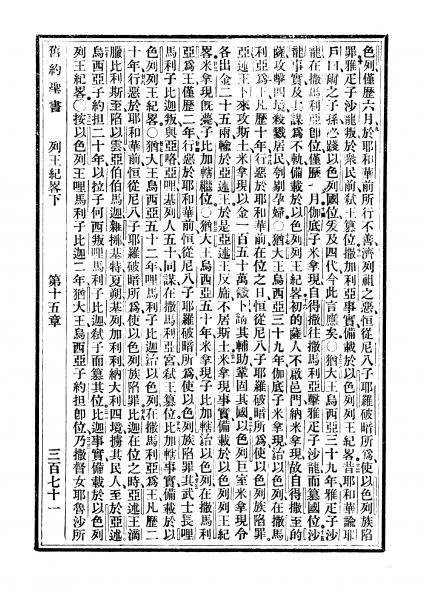 色列僅歷六月於耶和華前所行不善濟列祖之惡恒從尼八子耶羅破暗所爲使以色列族陷
罪雅疋子沙龍叛於衆民前弑王篡位撒加利亞事實備載於以色列列王紀畧昔耶和華諭耶
戶曰爾之子孫必踐以色列國位爰及四代今此言應矣○猶大王烏西亞三十九年雅疋子沙
龍在撒馬利亞卽位僅歷一月伽底子米拿現自得撒往撒馬利亞擊雅疋子沙龍而篡國位沙
龍事實及其謀爲不軌備載於以色列列王紀畧初的薩人不啟邑門納米拿現故自得撒至的
薩攻擊四境殺戮居民刳剔孕婦○猶大王烏西亞三十九年伽底子米拿現治以色列在撒馬
利亞爲王凡歷十年行惡於耶和華前在位之日恒從尼八子耶羅破暗所爲使以色列族陷罪
亞述王卜來攻斯土米拿現以金一百五十萬餽卜請其輔助鞏固其國以色列巨室米拿現令
各出金二十五兩輸於亞述王於是亞述王反旆不居斯土米拿現事實備載於以色列列王紀
畧米拿現旣薨子比加轄繼位○猶大王烏西亞五十年米拿現子比加轄治以色列在撒馬利
亞爲王僅歷二年行惡於耶和華前恒從尼八子耶羅破暗所爲使以色列族陷罪其武士長哩
馬利子比迦叛與亞咯亞哩基列人五十同謀在撒馬利亞宮弑王篡位比加轄事實備載於以
色列列王紀畧○猶大王烏西亞五十二年哩馬利子比迦治以色列在撒馬利亞爲王凡歷二
十年行惡於耶和華前恒從尼八子耶羅破暗所爲使以色列族陷罪比迦在位之時亞述王滴
臘比利斯至陷以雲亞伯伯馬迦雅挪基特夏朔基列加利利納大利四境擄其民人至於亞述
烏西亞子約担二十年以拉子何西叛哩馬利子比迦弑子而篡其位比迦事實備載於以色列
列王紀畧○按以色列王哩馬利子比迦二年猶大王烏西亞子約担卽位乃撒督女耶魯沙所
舊約聖書 列王紀畧下 第十五章 三百七十一